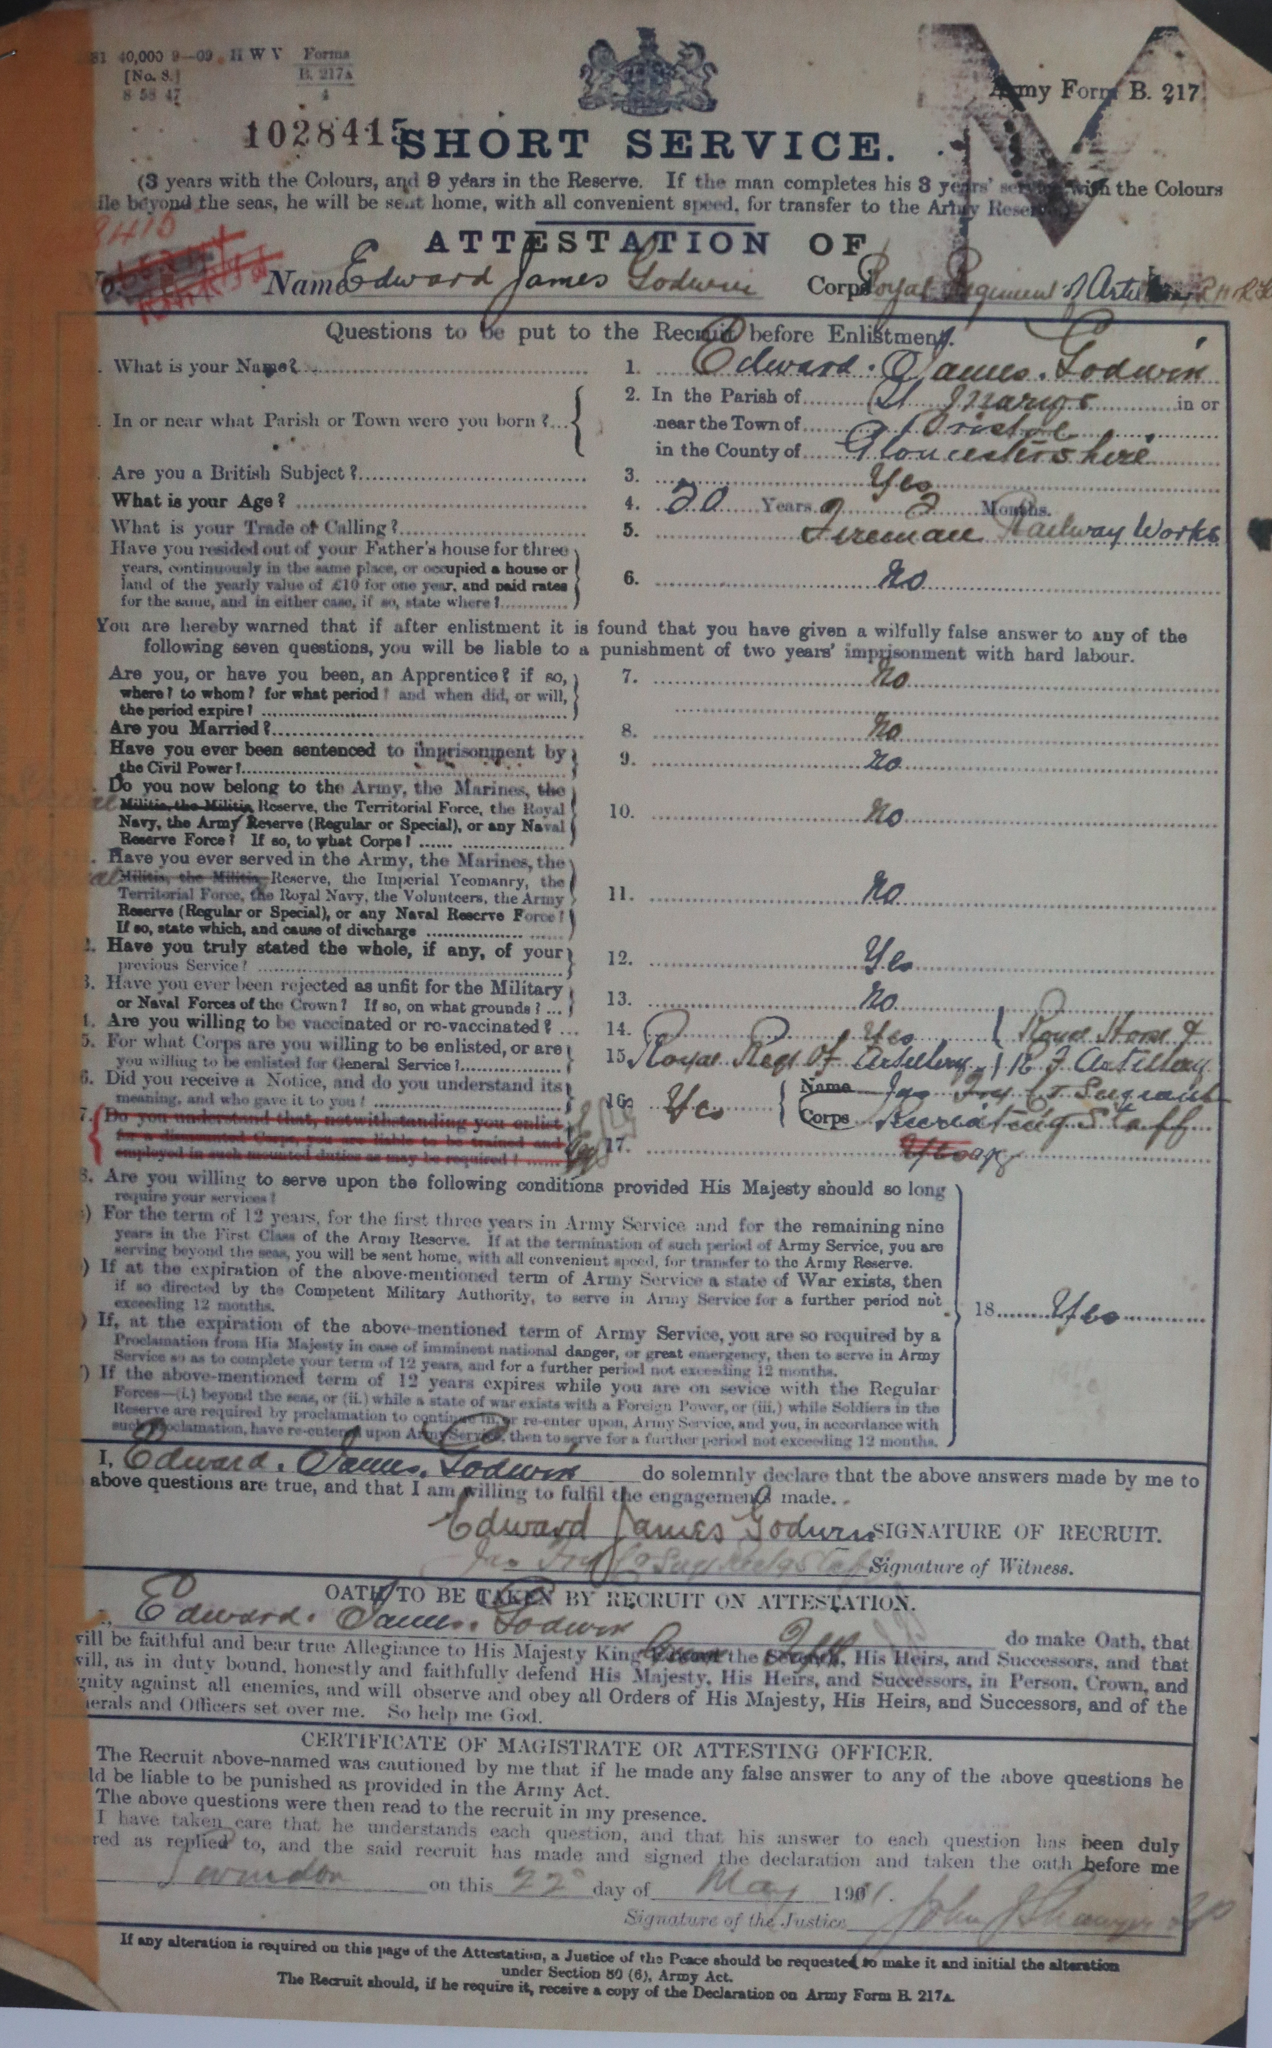 81 40,000 9—09 H W V Forms
[No. 8.] B. 217A
8 58 47 4
Army Form B. 217
1028415
SHORT SERVICE.
(3 years with the Colours, and 9 years in the Reserve. If the man completes his 3 years' service with the Colours
beyond the seas, he will be sent home, with all convenient speed, for transfer to the Army Reserve
ATTESTATION OF
No. Name Edward James Godwin Corps Royal Regiment of Artillery
Questions to be put to the Recruit before Enlistment.
What is your Name? 1. Edward. James. Godwin
In or near what Parish or Town were you born?
2. In the Parish of St Mary's in or
near the Town of Bristol
in the County of Gloucestershire
Are you a British Subject? 3. Yes
What is your Age? 4. 20 Years 2 Months.
What is your Trade or Calling? 5. Fireman Railway Works
Have you resided out of your Father's house for three
years, continuously in the same place, or occupied a house or
land of the yearly value of £10 for one year, and paid rates
for the same, and in either case, if so, state where? 6. No
You are hereby warned that if after enlistment it is found that you have given a wilfully false answer to any of the
following seven questions, you will be liable to a punishment of two years' imprisonment with hard labour.
Are you, or have you been, an Apprentice? if so, 7. No
where? to whom? for what period? and when did, or will,
the period expire?
Are you Married? 8. No
Have you ever been sentenced to imprisonment by
the Civil Power? 9. No
Do you now belong to the Army, the Marines, the
Militia, the Militia Reserve, the Territorial Force, the Royal
Navy, the Army Reserve (Regular or Special), or any Naval
Reserve Force? If so, to what Corps? 10. No
Have you ever served in the Army, the Marines, the
Militia, the Militia Reserve, the Imperial Yeomanry, the
Territorial Force, the Royal Navy, the Volunteers, the Army
Reserve (Regular or Special), or any Naval Reserve Force?
If so, state which, and cause of discharge 11. No
2. Have you truly stated the whole, if any, of your
previous Service? 12. Yes
3. Have you ever been rejected as unfit for the Military
or Naval Forces of the Crown? If so, on what grounds? ... 13. No
4. Are you willing to be vaccinated or re-vaccinated? ... 14. Yes
5. For what Corps are you willing to be enlisted, or are
you willing to be enlisted for General Service? 15. Royal Regt Of Artillery Royal Horse & R. F. Artillery
6. Did you receive a Notice, and do you understand its
meaning, and who gave it to you? 16. Yes Name Jas Fry Ct Sergeant
Corps Recruiting Staff
7. Do you understand that, notwithstanding you enlist
for a dismounted Corps, you are liable to be trained and
employed in such mounted duties as may be required? 17.
8. Are you willing to serve upon the following conditions provided His Majesty should so long
require your services?
) For the term of 12 years, for the first three years in Army Service and for the remaining nine
years in the First Class of the Army Reserve. If at the termination of such period of Army Service, you are
serving beyond the seas, you will be sent home, with all convenient speed, for transfer to the Army Reserve.
) If at the expiration of the above-mentioned term of Army Service a state of War exists, then
if so directed by the Competent Military Authority, to serve in Army Service for a further period not
exceeding 12 months. 18. Yes
) If, at the expiration of the above-mentioned term of Army Service, you are so required by a
Proclamation from His Majesty in case of imminent national danger, or great emergency, then to serve in Army
Service so as to complete your term of 12 years, and for a further period not exceeding 12 months.
) If the above-mentioned term of 12 years expires while you are on sevice with the Regular
Forces—(i.) beyond the seas, or (ii.) while a state of war exists with a Foreign Power, or (iii.) while Soldiers in the
Reserve are required by proclamation to continue in, or re-enter upon, Army Service, and you, in accordance with
such proclamation, have re-entered upon Army Service, then to serve for a further period not exceeding 12 months.
I, Edward. James. Godwin do solemnly declare that the above answers made by me to
above questions are true, and that I am willing to fulfil the engagements made.
Edward James Godwin SIGNATURE OF RECRUIT.
Jas Fry Signature of Witness.
OATH TO BE TAKEN BY RECRUIT ON ATTESTATION.
Edward. James. Godwin do make Oath, that
will be faithful and bear true Allegiance to His Majesty King the His Heirs, and Successors, and that
will, as in duty bound, honestly and faithfully defend His Majesty, His Heirs, and Successors, in Person, Crown, and
gnity against all enemies, and will observe and obey all Orders of His Majesty, His Heirs, and Successors, and of the
nerals and Officers set over me. So help me God.
CERTIFICATE OF MAGISTRATE OR ATTESTING OFFICER.
The Recruit above-named was cautioned by me that if he made any false answer to any of the above questions he
ld be liable to be punished as provided in the Army Act.
The above questions were then read to the recruit in my presence.
I have taken care that he understands each question, and that his answer to each question has been duly
red as replied to, and the said recruit has made and signed the declaration and taken the oath before me
Swindon on this 22 day of May 19
Signature of the Justice John
If any alteration is required on this page of the Attestation, a Justice of the Peace should be requested to make it and initial the alteration
under Section 80 (6), Army Act.
The Recruit should, if he require it, receive a copy of the Declaration on Army Form B. 217A.